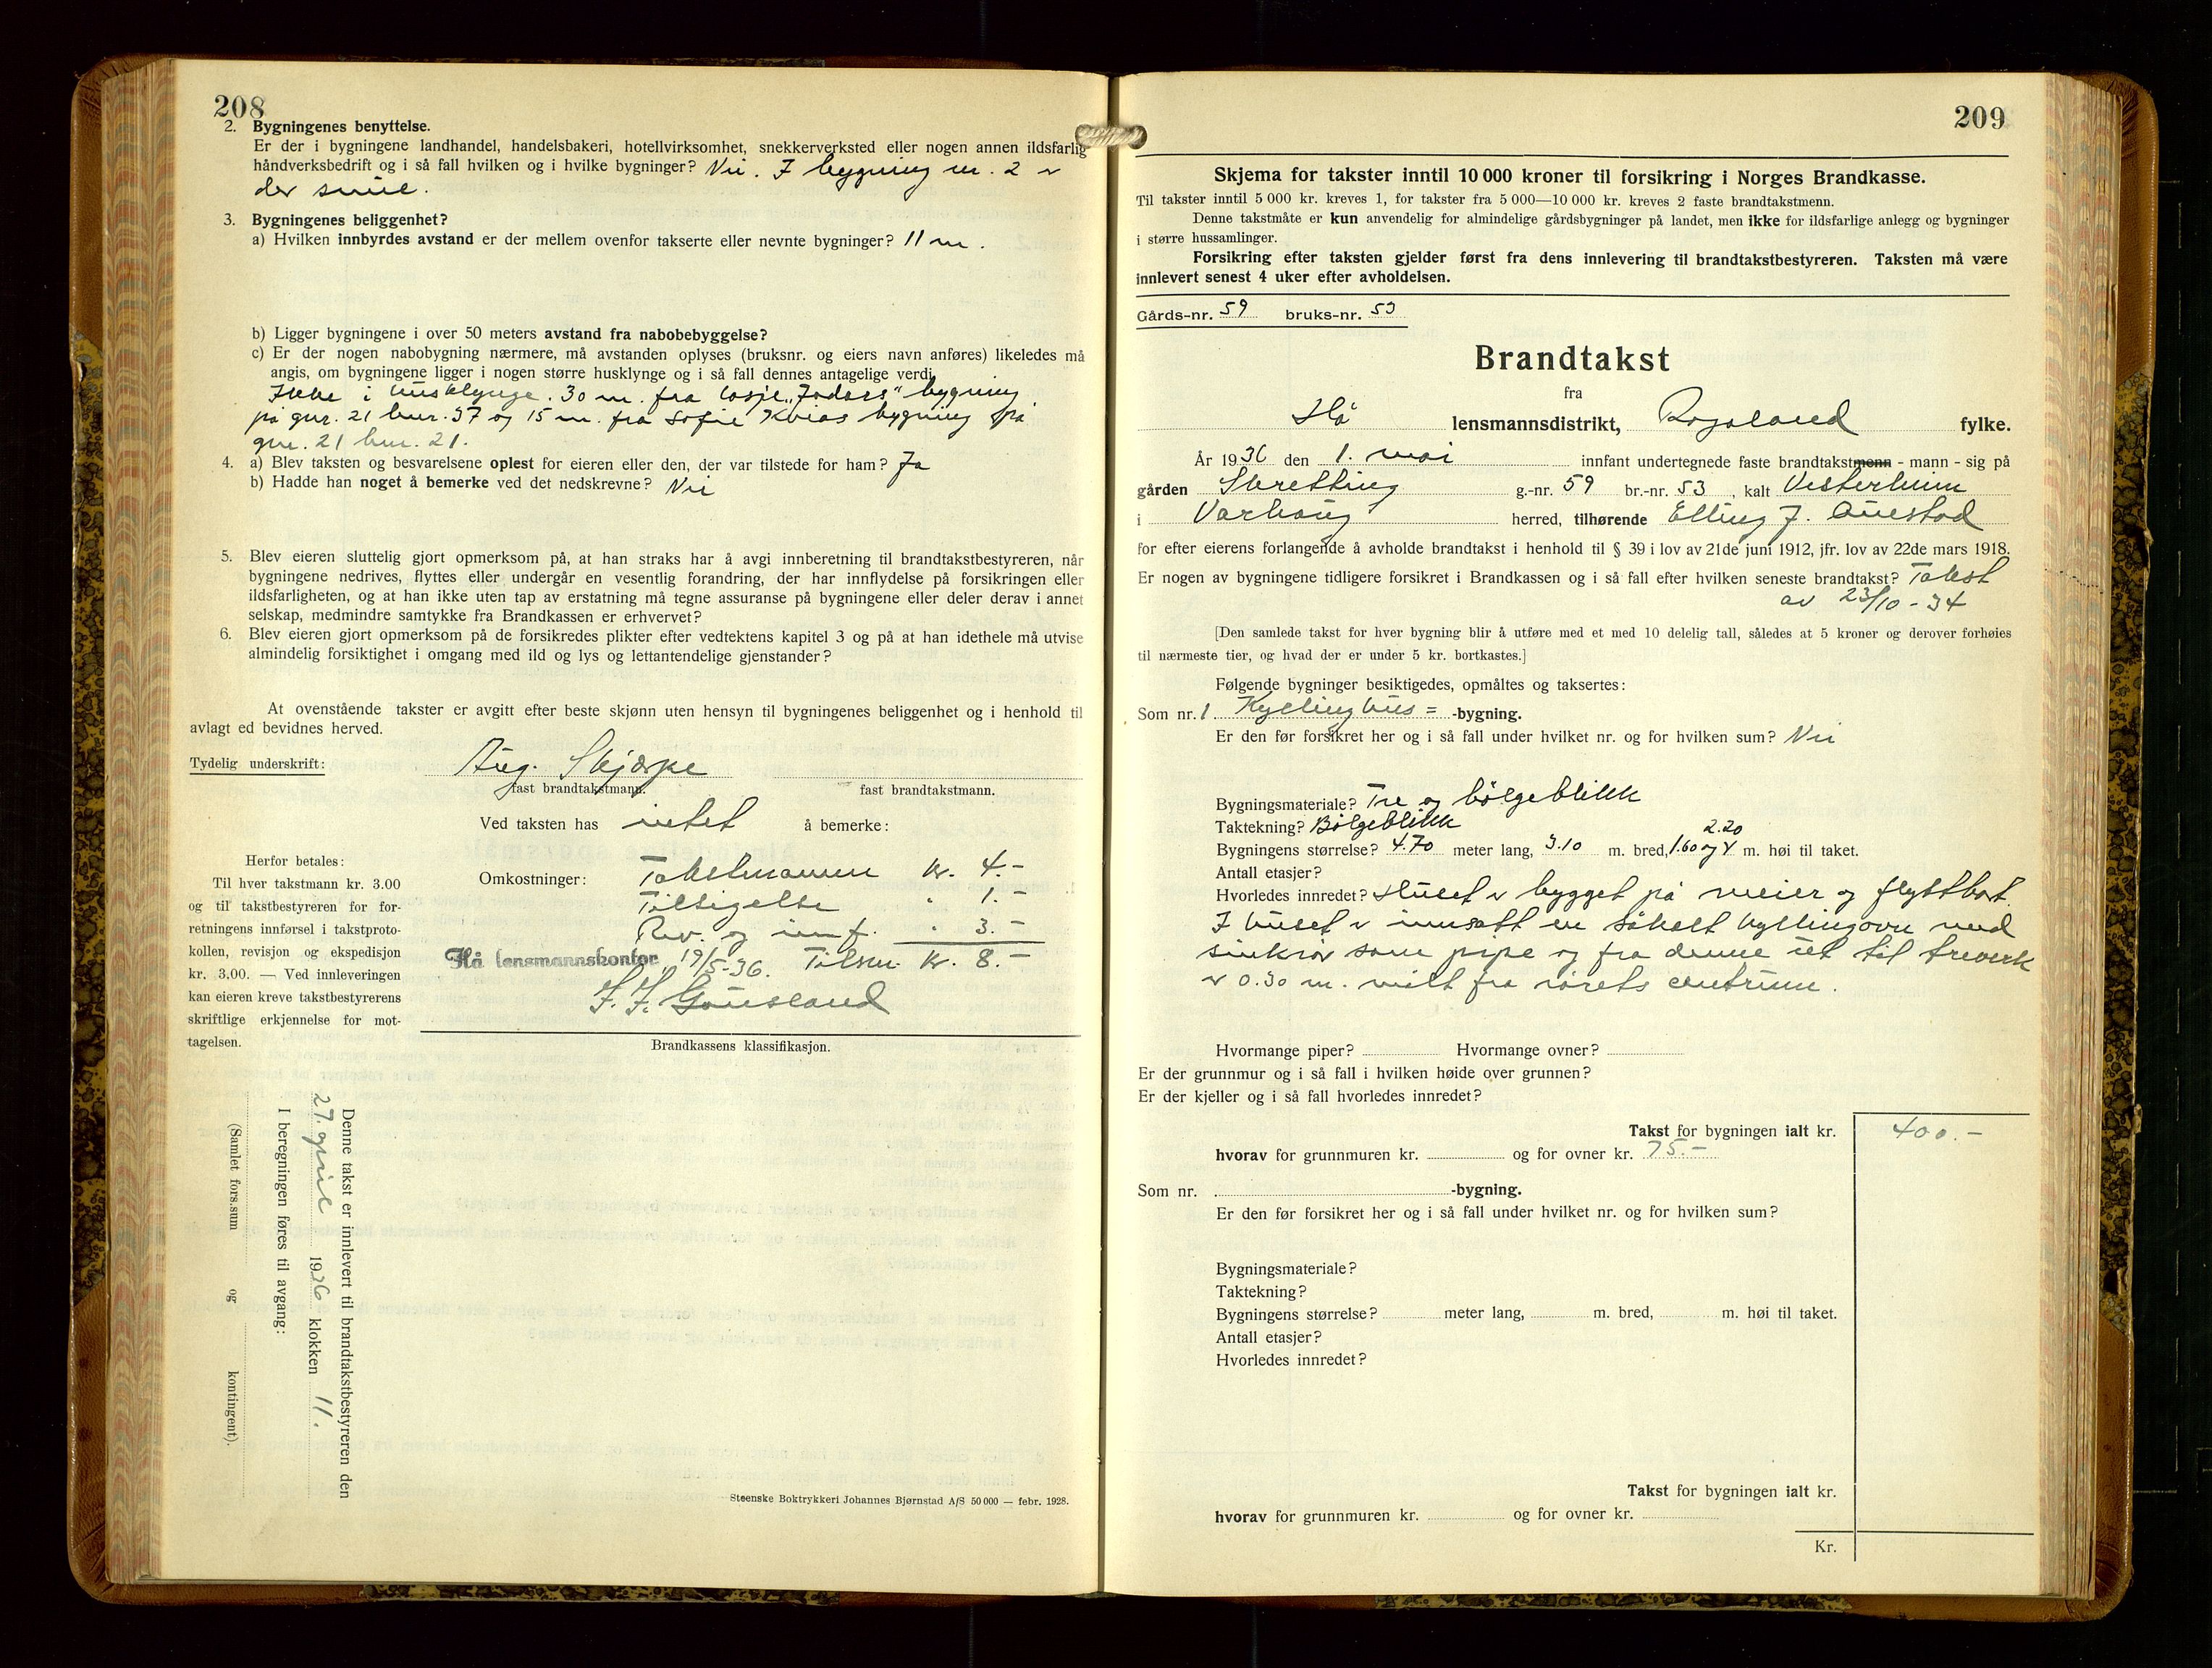 208
2. Bygningenes benyttelse.
Er der i bygningene landhandel, handelsbakeri, hotellvirksomhet, snekkerverksted eller nogen annen ildsfarlig
håndverksbedrift og i så fall hvilken og i hvilke bygninger? Nei. I bygning nr. 2 er
der smie.
3. Bygningenes beliggenhet?
a) Hvilken innbyrdes avstand er der mellem ovenfor takserte eller nevnte bygninger? 11 m.
b) Ligger bygningene i over 50 meters avstand fra nabobebyggelse?
c) Er der nogen nabobygning nærmere, må avstanden oplyses (bruksnr. og eiers navn anføres) likeledes må
angis, om bygningene ligger i nogen større husklynge og i så fall dennes antagelige verdi.
Ikke i husklynge. 30 m. fra losje „Jadars" bygning
på gnr. 21 bnr. 37 og 15 m. fra Sofie Kvias bygning på
gnr. 21 bnr. 21.
4. a) Blev taksten og besvarelsene oplest for eieren eller den, der var tilstede for ham? Ja
b) Hadde han noget å bemerke ved det nedskrevne? Nei
5. Blev eieren sluttelig gjort opmerksom på, at han straks har å avgi innberetning til brandtakstbestyreren, når
bygningene nedrives, flyttes eller undergår en vesentlig forandring, der har innflydelse på forsikringen eller
ildsfarligheten, og at han ikke uten tap av erstatning må tegne assuranse på bygningene eller deler derav i annet
selskap, medmindre samtykke fra Brandkassen er erhvervet?
6. Blev eieren gjort opmerksom på de forsikredes plikter efter vedtektens kapitel 3 og på at han idethele må utvise
almindelig forsiktighet i omgang med ild og lys og lettantendelige gjenstander?
At ovenstående takster er avgitt efter beste skjønn uten hensyn til bygningenes beliggenhet og i henhold til
avlagt ed bevidnes herved.
Tydelig underskrift: Aug. Skjærpe
fast brandtakstmann. fast brandtakstmann.
Ved taksten has intet å bemerke:
Omkostninger: Takstmannen kr. 4.-
Tilsigelse " 1.-
Rev. og innf. " 3.-
Hå lensmannskontor, 19/5-36. Tilsm. kr. 8.-
Gausland
Herfor betales:
Til hver takstmann kr. 3.00
og til takstbestyreren for for-
retningens innførsel i takstproto-
kollen, revisjon og ekspedisjon
kr. 3.00. — Ved innleveringen
kan eieren kreve takstbestyrerens
skriftlige erkjennelse for mot-
tagelsen.
Brandkassens klassifikasjon.
Denne takst er innlevert til brandtakstbestyreren den
27. april 1936 klokken 11.
I beregningen føres til avgang:
(Samlet fors.sum og kontingent).
Steenske Boktrykkeri Johannes Bjørnstad A/S 50 000 — febr. 1928.
209
Skjema for takster inntil 10 000 kroner til forsikring i Norges Brandkasse.
Til takster inntil 5 000 kr. kreves 1, for takster fra 5 000—10 000 kr. kreves 2 faste brandtakstmenn.
Denne takstmåte er kun anvendelig for almindelige gårdsbygninger på landet, men ikke for ildsfarlige anlegg og bygninger
i større hussamlinger.
Forsikring efter taksten gjelder først fra dens innlevering til brandtakstbestyreren. Taksten må være
innlevert senest 4 uker efter avholdelsen.
Gårds-nr. 59 bruks-nr. 53
Brandtakst
fra
Hå lensmannsdistrikt, Rogaland fylke.
År 1936 den 1. mai innfant undertegnede faste brandtakstmenn - mann - sig på
gården Skretting g.-nr. 59 br.-nr. 53, kalt Vesterheim
i Varhaug herred, tilhørende Elling J. Auestad
for efter eierens forlangende å avholde brandtakst i henhold til § 39 i lov av 21de juni 1912, jfr. lov av 22de mars 1918.
Er nogen av bygningene tidligere forsikret i Brandkassen og i så fall efter hvilken seneste brandtakst? Takst
av 23/10 - 34
[Den samlede takst for hver bygning blir å utføre med et med 10 delelig tall, således at 5 kroner og derover forhøies
til nærmeste tier, og hvad der er under 5 kr. bortkastes.]
Følgende bygninger besiktigedes, opmåltes og taksertes:
Som nr. 1 Kyllinghus= -bygning.
Er den før forsikret her og i så fall under hvilket nr. og for hvilken sum? Nei
Bygningsmateriale? Tre og bølgeblikk
Taktekning? Bølgeblikk
2.20
Bygningens størrelse? 4.70 meter lang, 3.10 m. bred, 1.60 og m. høi til taket.
Antall etasjer?
Hvorledes innredet? Huset er bygget på meier og flyttbart.
I huset er innsatt en såkalt kyllingovn med
sinkrør som pipe og fra denne ut til treverk
er 0.30 m. målt fra rørets centrum.
Hvormange piper? Hvormange ovner?
Er der grunnmur og i så fall i hvilken høide over grunnen?
Er der kjeller og i så fall hvorledes innredet?
Takst for bygningen ialt kr. 400.-
hvorav for grunnmuren kr. og for ovner kr. 75.-
Som nr. -bygning.
Er den før forsikret her og i så fall under hvilket nr. og for hvilken sum?
Bygningsmateriale?
Taktekning?
Bygningens størrelse? meter lang, m. bred, m. høi til taket.
Antall etasjer?
Hvorledes innredet?
Takst for bygningen ialt kr.
hvorav for grunnmuren kr. og for ovner kr.
Kr.